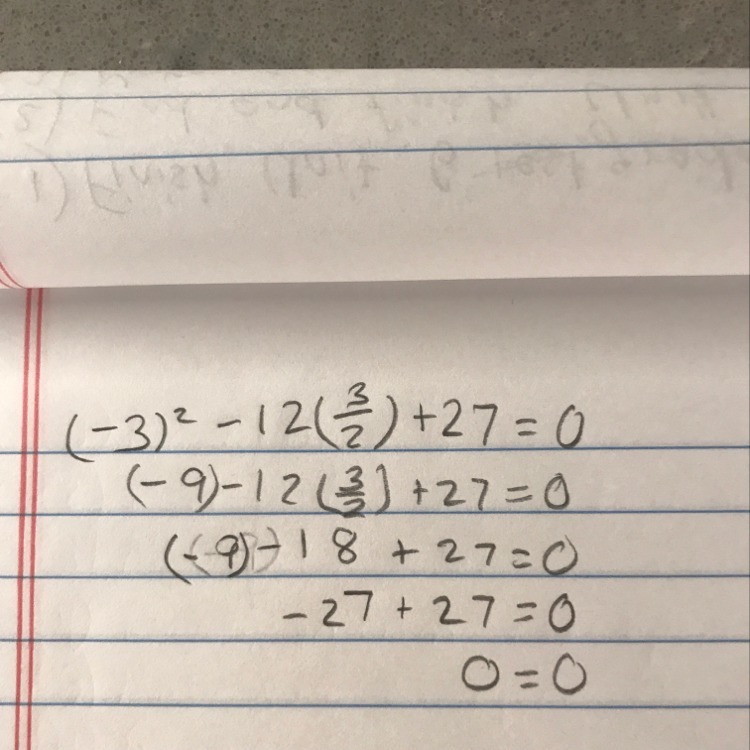 (-3)² - 12(3/2) + 27 = 0
(-9) - 12(3/2] + 27 = 0
(-9) - 18 + 27 = 0
-27 + 27 = 0
0 = 0